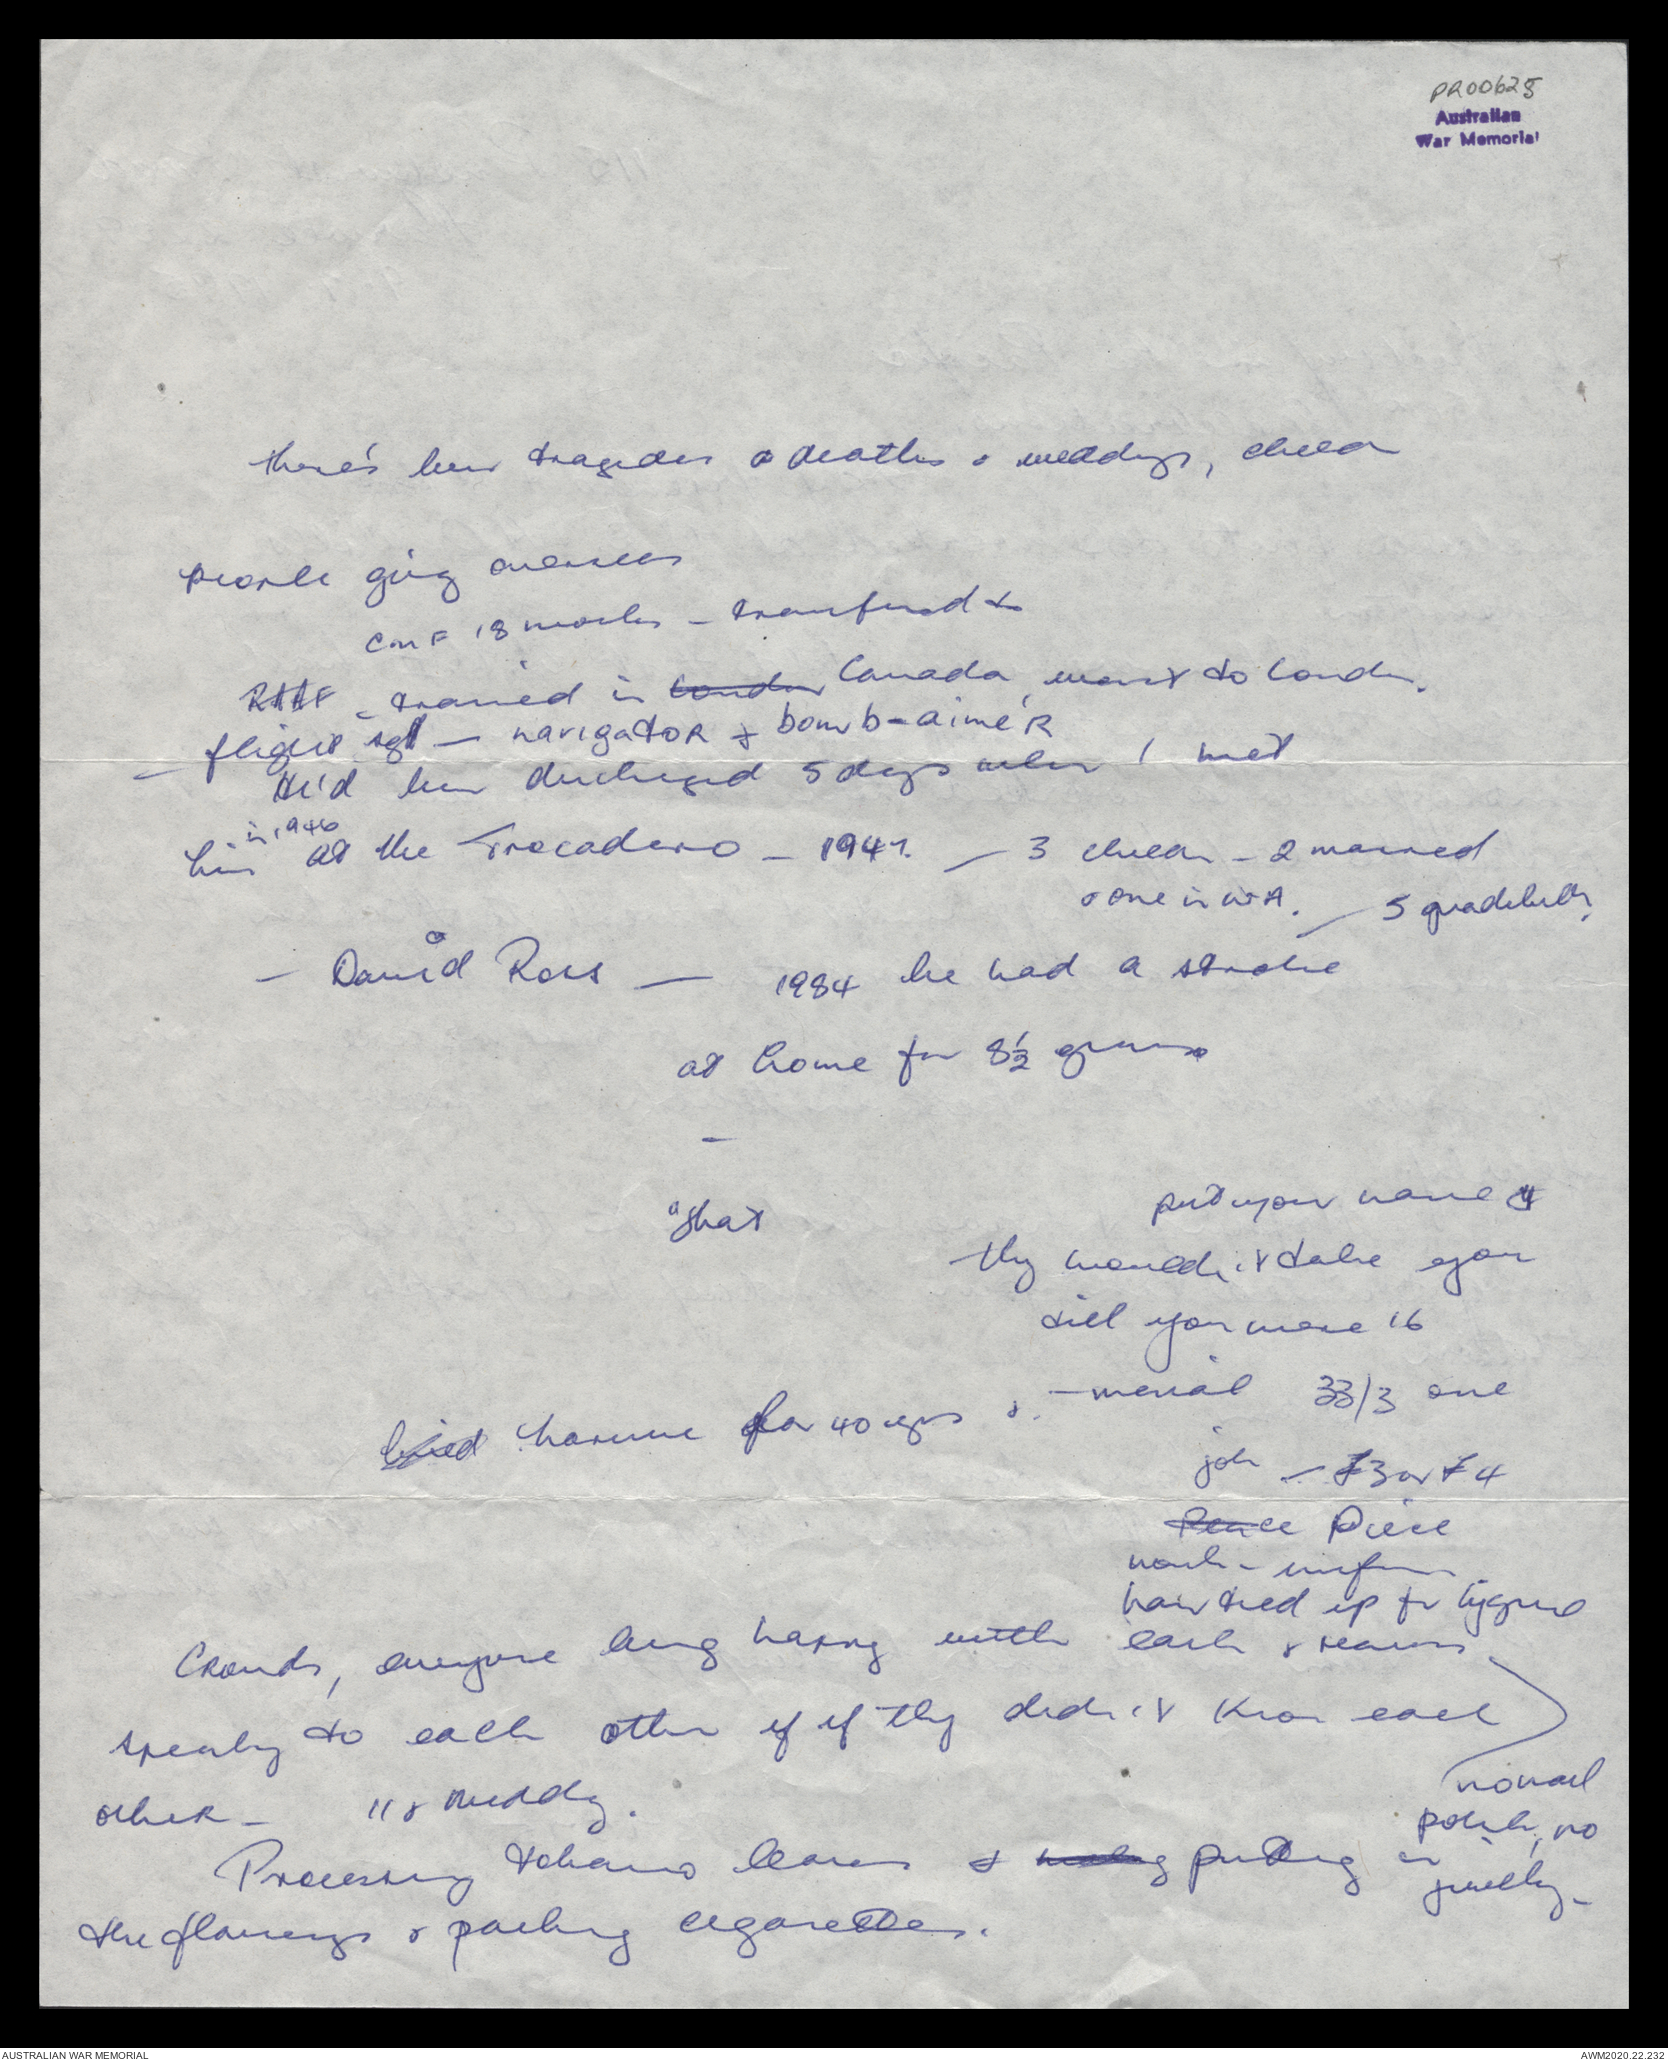 PR00625
Australian
War Memorial
there's been tragedies & deaths & weddings, childn
people going overseas
CMF 18 months - transferred to
RAAF - trained in London Canada, went to London.
flight sgt - navigator & bomb-aimer
- He'd been discharged 5 days when I met
him in 1946 at the Trocadero - 1947. - 3 childn - 2 married
& one in WA. - 5 grandchildn,
- David Ross - 1984 he had a stroke
at home for 8½ years
-
"that
put your name
they wouldn't take you
till you were 16
- menial 33/3 one
job - £3 or £4
Pence Piece
work - uniform
hair tied up for hygiene
no nail
polish, no
jewellry -
lived for 40 yrs &.
Crowds, everyone being happy with each &
speaking to each other if if they didn't know each
other - 118 Meddy.
Processing tobacco leaves & making putting in
the flavourings & packing cigarettes.
AUSTRALIAN WAR MEMORIAL
AWM2020.22.232